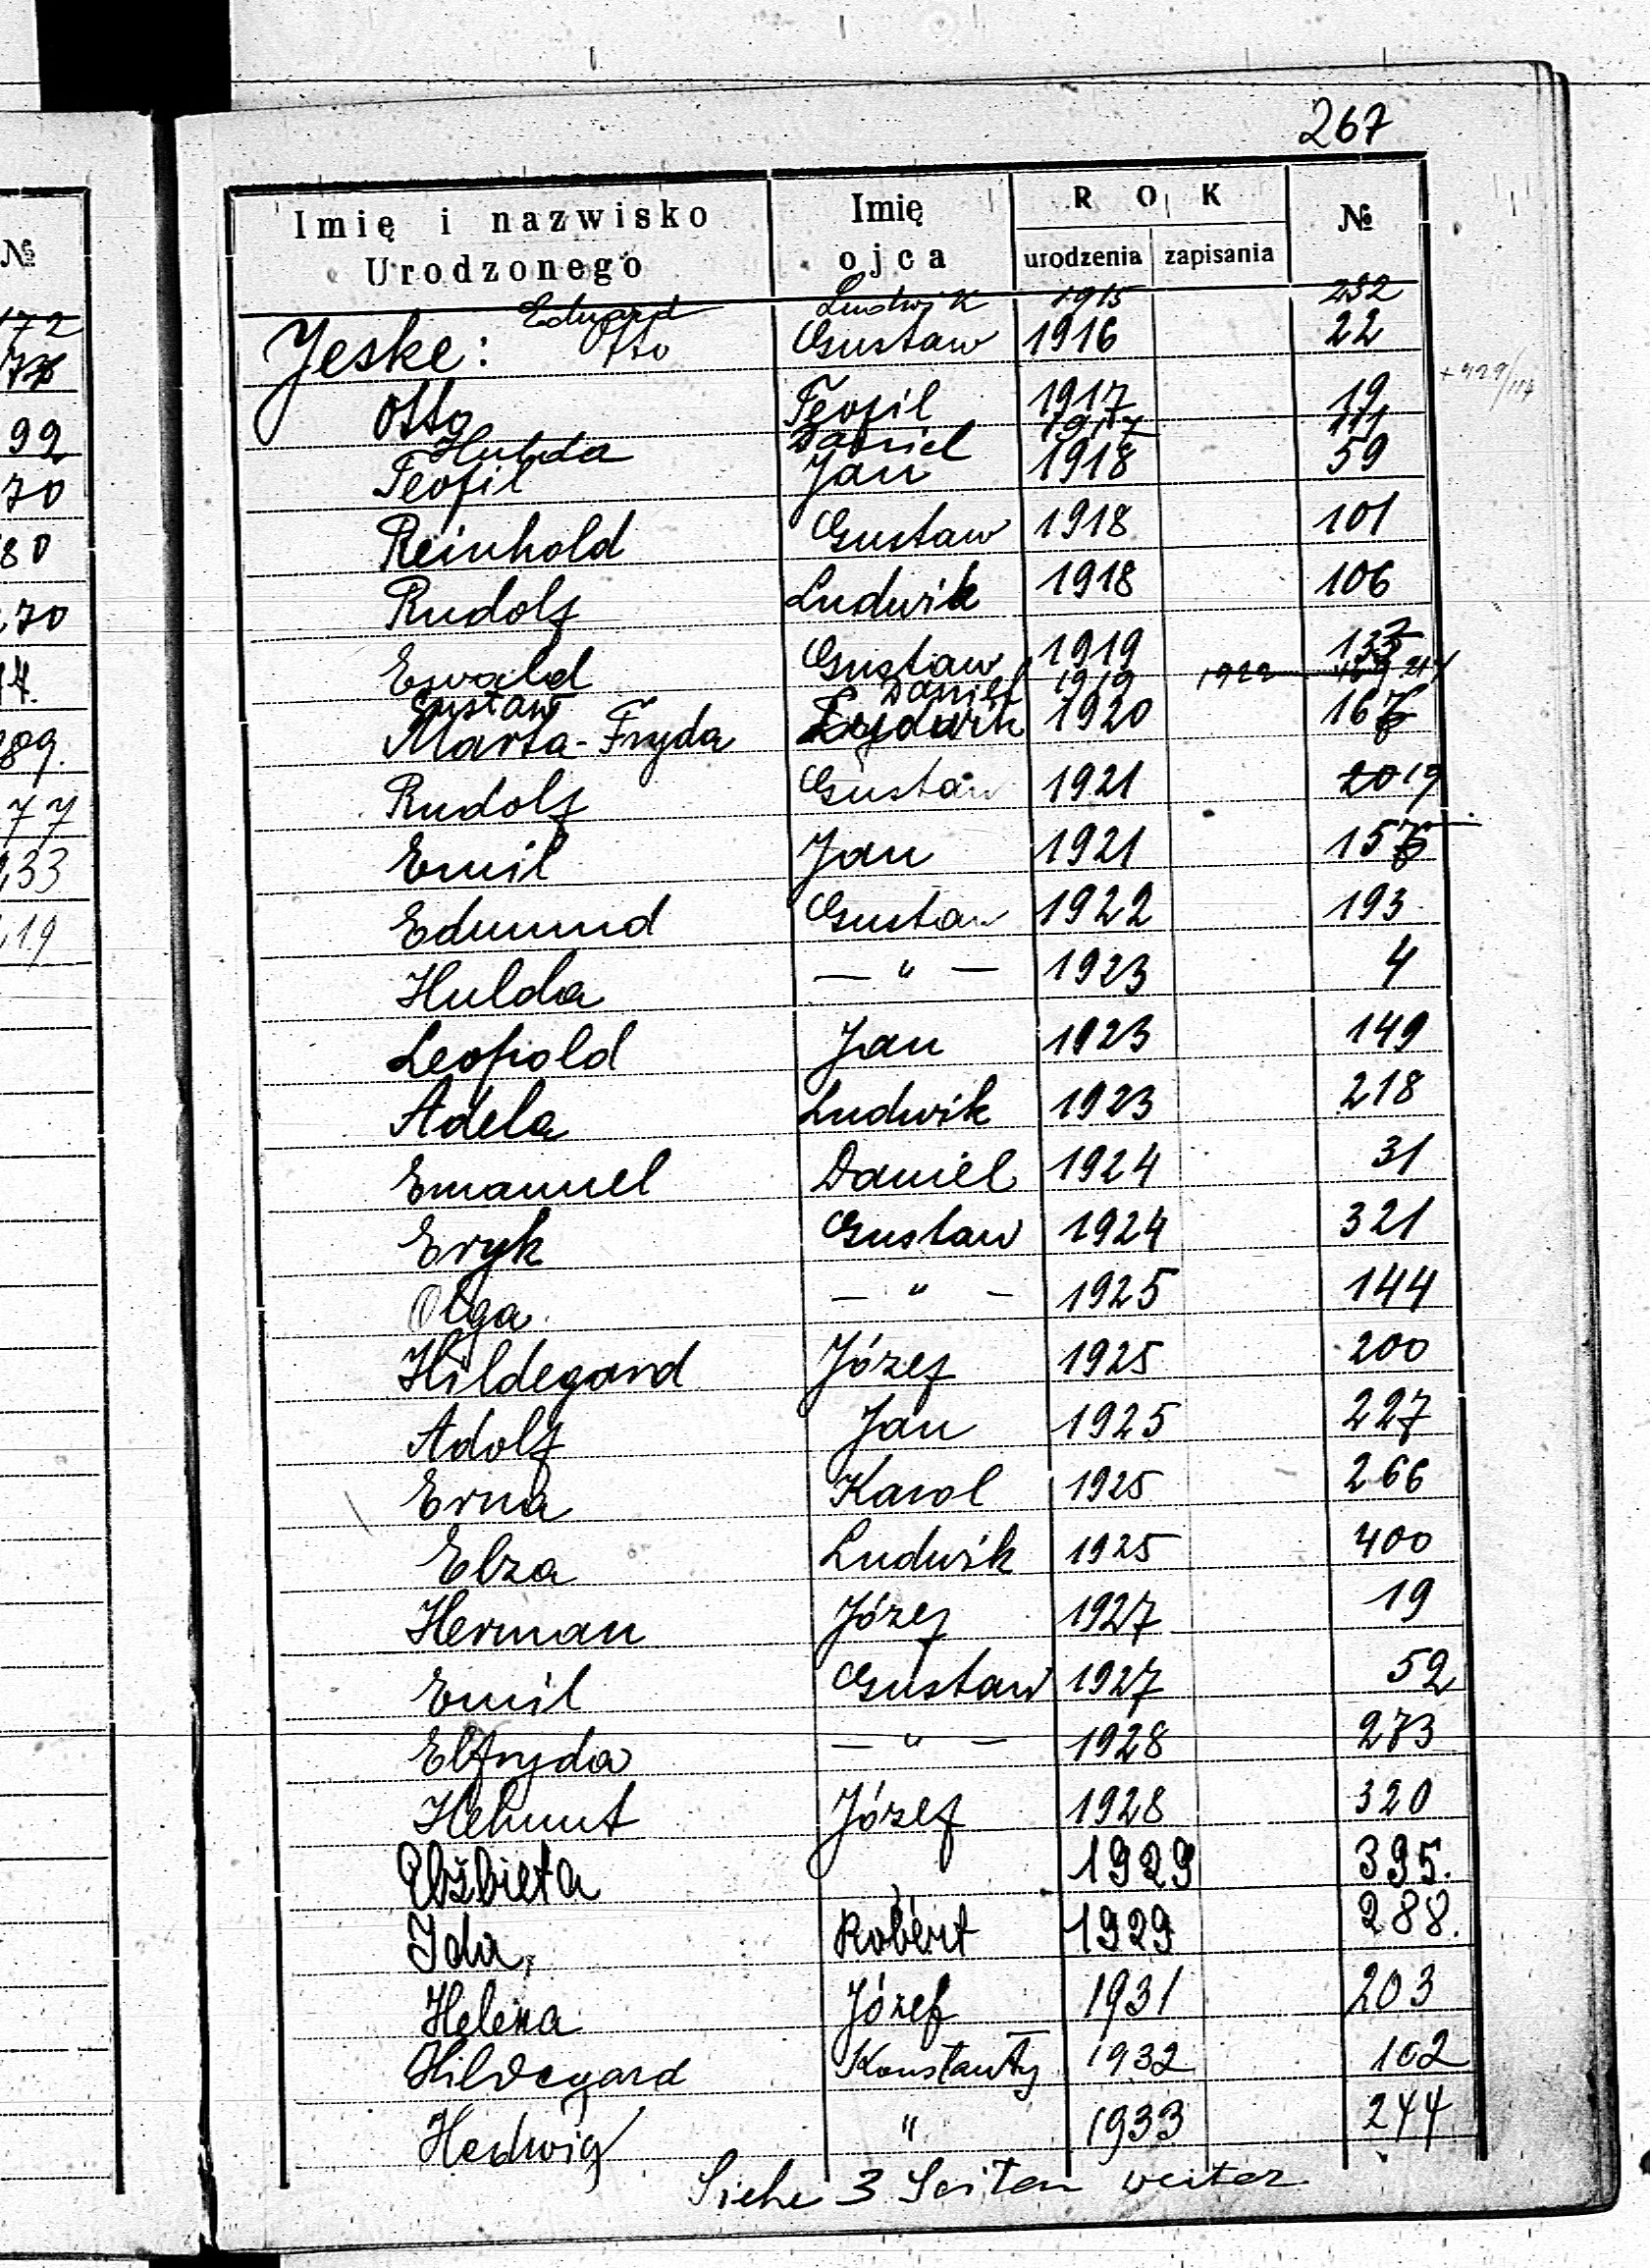 267
Imię i nazwisko Urodzonego Imię ojca ROK urodzenia zapisania №
№
Eduard Ludwik 1915 232
172
Jeske: Otto Gustaw 1916 22
Otto Teofil 1917 19
99
Hulda Daniel 1917 111
Teofil Jan 1918 59
70
Reinhold Gustaw 1918 101
80
Rudolf Ludwik 1918 106
70
Ewald Gustaw 1919
Gustaw Daniel 1919 1922
Marta-Fryda Ludwik 1920
89.
Rudolf Gustaw 1921 19
77
Emil Jan 1921
33
Edmund Gustaw 1922 193
19
Hulda — " — 1923 4
Leopold Jan 1923 149
Adela Ludwik 1923 218
Emanuel Daniel 1924 31
Eryk Gustaw 1924 321
Olga — " — 1925 144
Hildegard Józef 1925 200
Adolf Jan 1925 227
Erna Karol 1925 266
Elza Ludwik 1925 400
Herman Józef 1927 19
Emil Gustaw 1927 52
Elfryda — " — 1928 273
Helmut Józef 1928 320
Elżbieta 1929 395.
Ida, Robert 1929 288.
Helena Józef 1931 203
Hildegard Konstanty 1932 102
Hedwig " 1933 244
Siehe 3 Seiten weiter